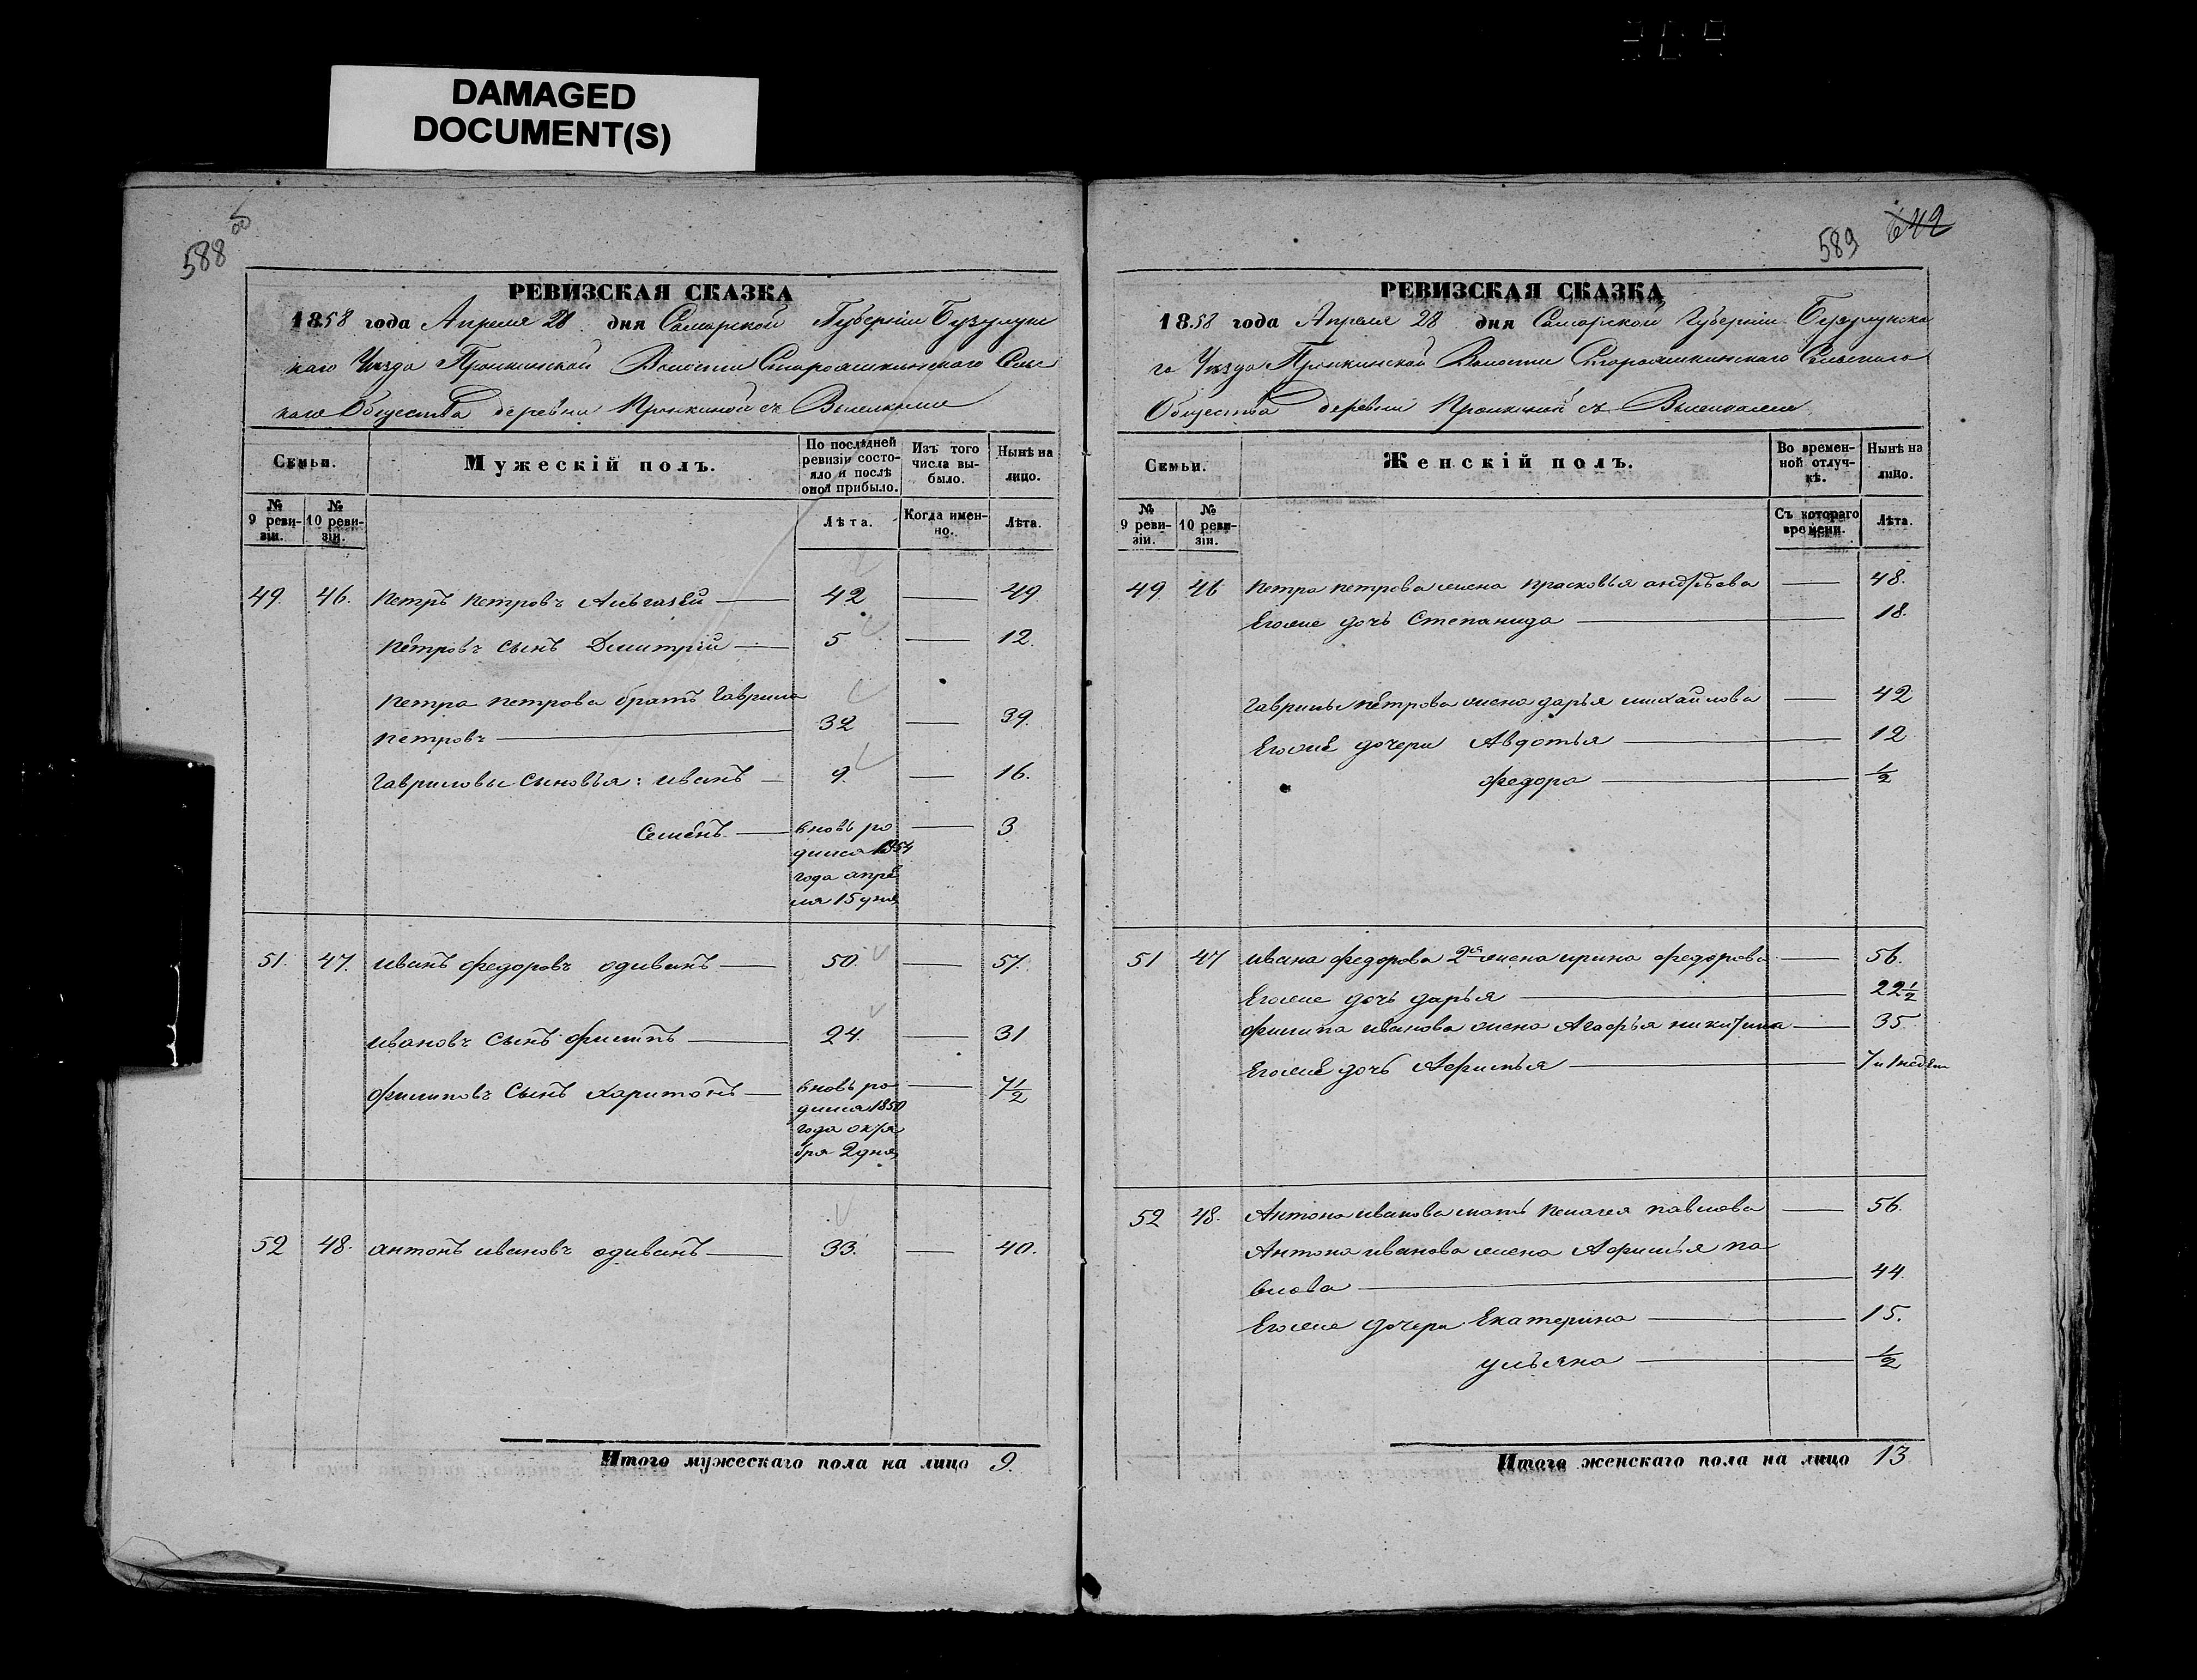 DAMAGED
DOCUMENT(S)
588
589 642
РЕВИЗСКАЯ СКАЗКА
1858 года Апреля 28 дня Самарской Губерніи Бузулукс
каго Уѣзда Пронкинской Волости Староашкинскаго Сельс
каго Общества деревни Пронкиной съ Выселками
Семьи.
Мужескій полъ.
По послѣдней ревизіи состояло и послѣ оной прибыло.
Изъ того числа выбыло.
Нынѣ на лицо.
№ 9 ревизіи.
№ 10 ревизіи.
Лѣта.
Когда именно.
Лѣта.
49. 46. Петръ Петровъ — 42 — 49
Петровъ сынъ Дмитрій — 5 — 12.
Петра Петрова братъ Гаврила
Петровъ — 32 — 39.
Гавриловы сыновья: Иванъ — 9. — 16.
Семенъ — вновь ро — 3
дился 1854
года апре
ля 15 дня
51. 47. Иванъ Федоровъ одиванъ — 50. — 57.
Ивановъ сынъ Филипъ — 24. — 31
Филиповъ сынъ Харитонъ — вновь ро — 7 1/2
дился 1850
года октя
бря 2 дня
52 48. Антонъ Ивановъ одиванъ — 33. — 40.
Итого мужескаго пола на лицо 9.
РЕВИЗСКАЯ СКАЗКА
1858 года Апреля 28 дня Самарской Губерніи Бузулукска
го Уѣзда Пронкинской Волости Староашкинскаго Сельскаго
Общества деревни Пронкиной съ Выселками
Семьи.
Женскій полъ.
Во временной отлучкѣ.
Нынѣ на лицо.
№ 9 ревизіи.
№ 10 ревизіи.
Съ котораго времени.
Лѣта.
49 46 Петра Петрова жена Прасковья Андрѣева — 48.
Егоже дочь Степанида — 18.
Гаврилы Петрова жена Дарья Михайлова — 42
Егоже дочери Авдотья — 12
Федора — 1/2
51 47 Ивана Федорова 2я жена Ирина Федорова — 56.
Егоже дочь Дарья — 22 1/2
Филипа Иванова жена Агафья Никитина — 35.
Егоже дочь Афимья — 7 и 1 недѣли
52 48. Антона Иванова мать Пелагея Павлова — 56.
Антона Иванова жена Афимья Па
влова — 44.
Егоже дочери Екатерина — 15.
Ульяна — 1/2
Итого женскаго пола на лицо 13